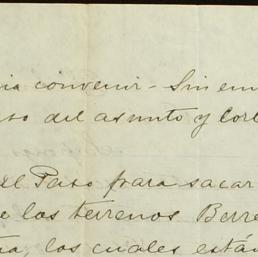 convenir - Sin em
del asunto y Cor
el Paso para sacar
e los terrenos Berre
ía, los cuales están